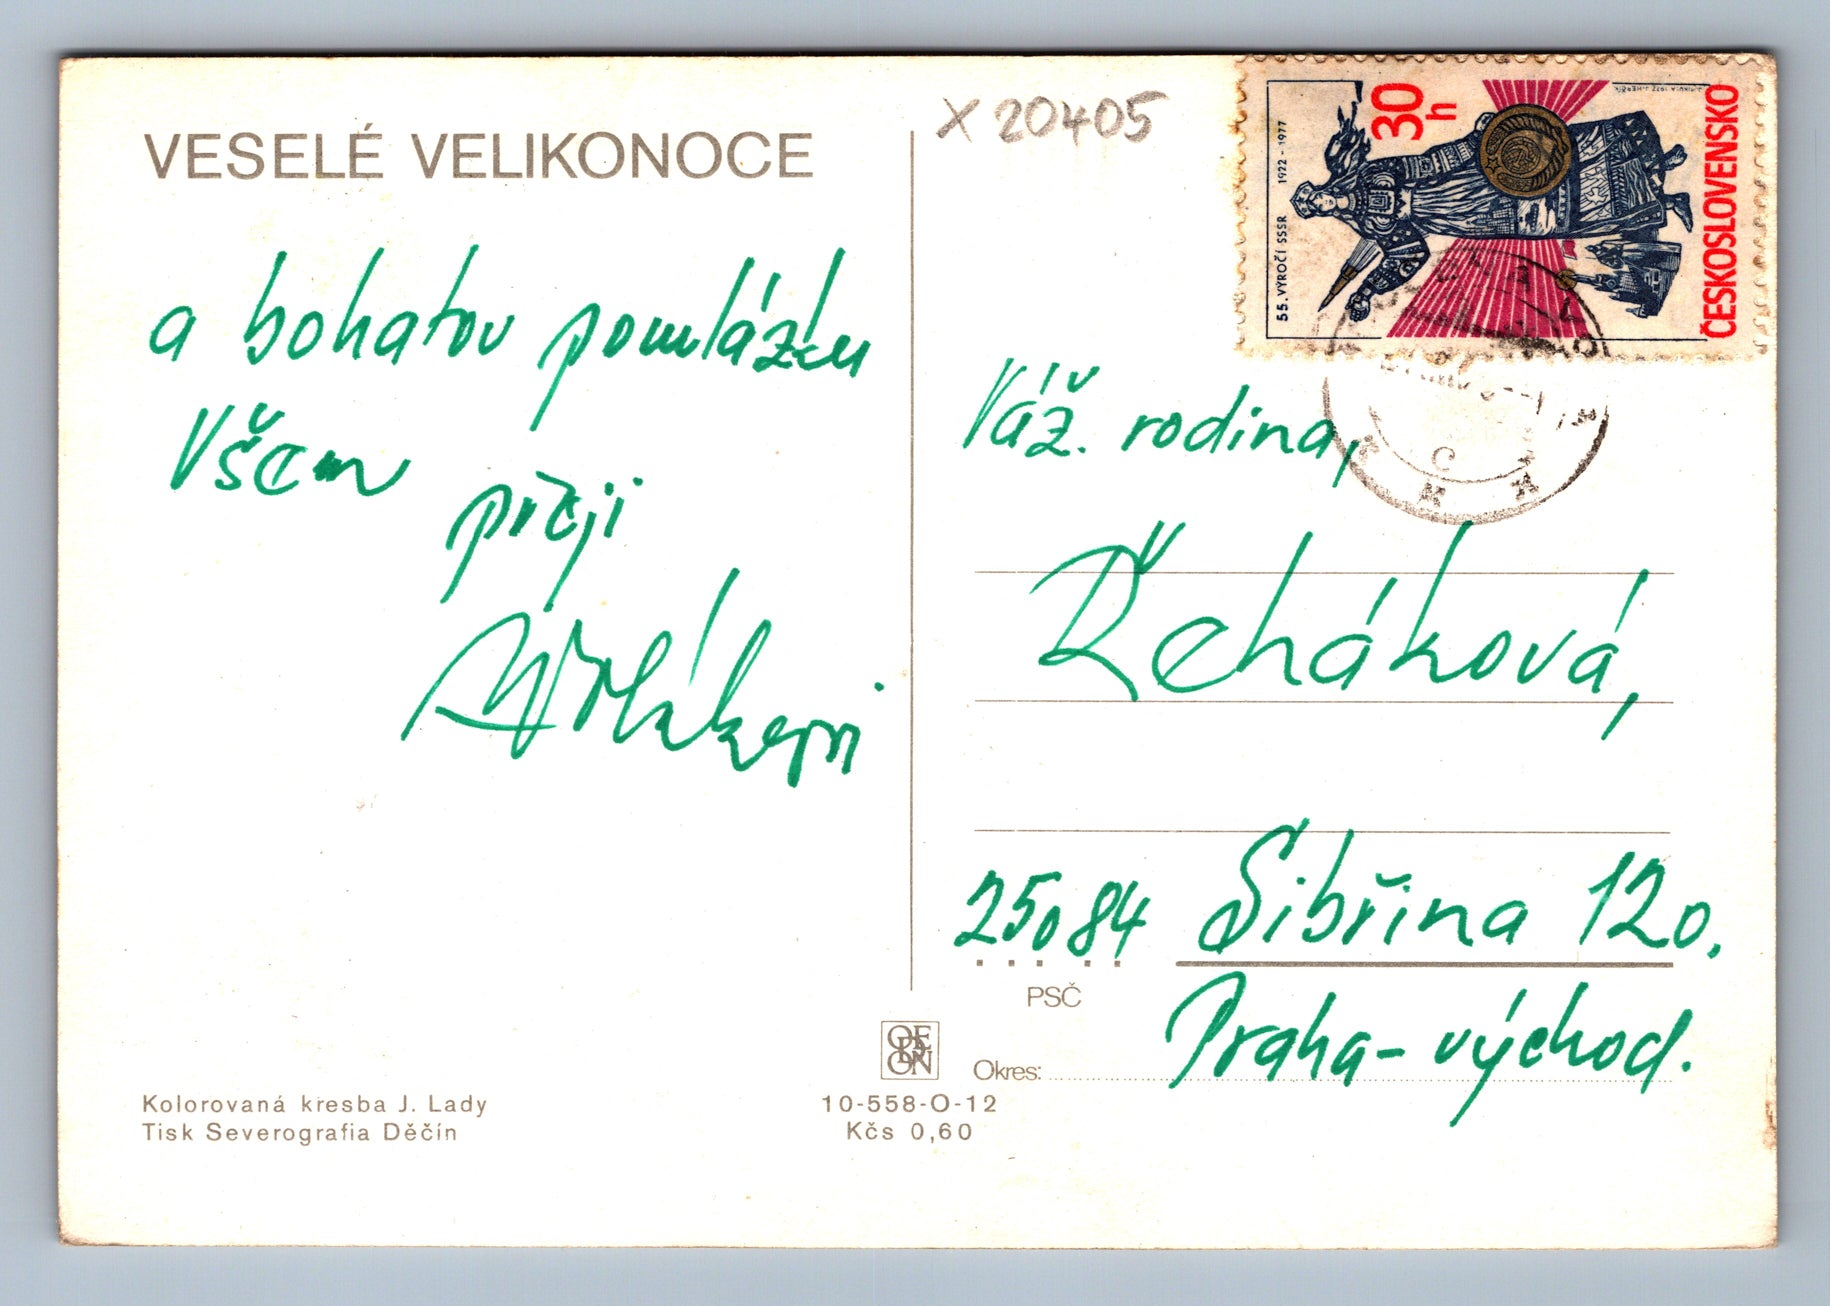 VESELÉ VELIKONOCE
a bohatou pomlázku
Všem
přeji
X 20405
55. VÝROČÍ SSSR 1922 - 1977
30
h
ČESKOSLOVENSKO
Váž. rodina,
Řeháková,
25084 Sibřina 120.
PSČ
Praha-východ.
Okres:
ODEON
Kolorovaná kresba J. Lady
Tisk Severografia Děčín
10-558-O-12
Kčs 0,60